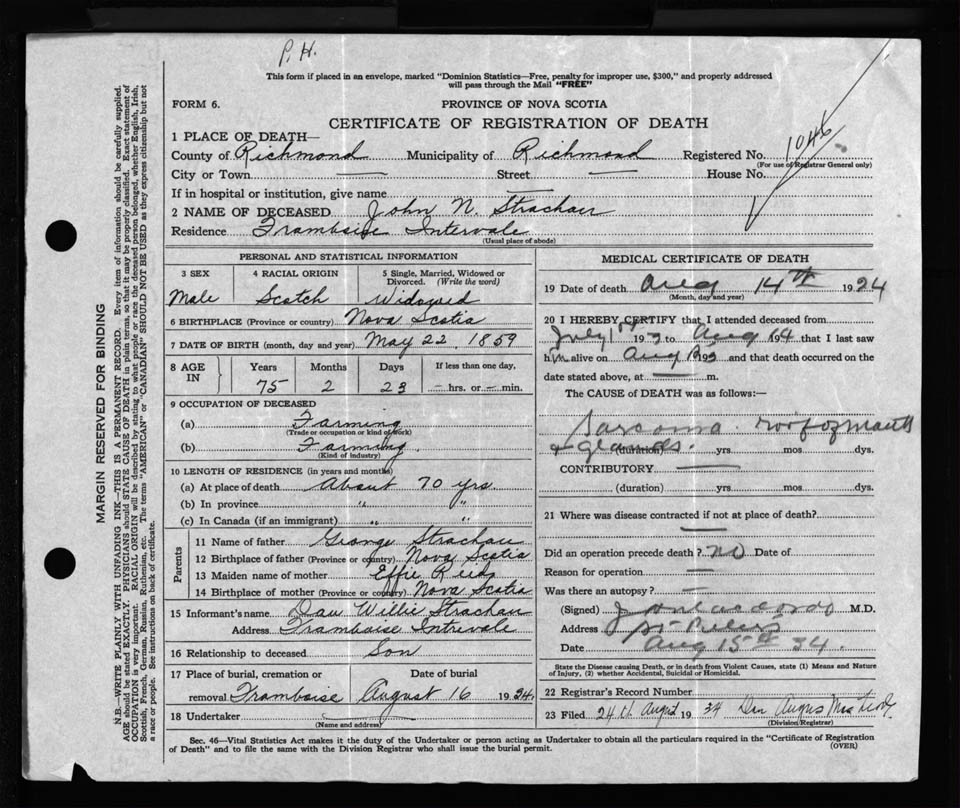 P. H.
This form if placed in an envelope, marked "Dominion Statistics—Free, penalty for improper use, $300," and properly addressed
will pass through the Mail "FREE"
FORM 6.
PROVINCE OF NOVA SCOTIA
CERTIFICATE OF REGISTRATION OF DEATH
1 PLACE OF DEATH—
County of Richmond Municipality of Richmond Registered No. 1046
(For use of Registrar General only)
City or Town — Street — House No.
If in hospital or institution, give name —
2 NAME OF DECEASED John N. Strachan
Residence Framboise Intervale
(Usual place of abode)
PERSONAL AND STATISTICAL INFORMATION
3 SEX 4 RACIAL ORIGIN 5 Single, Married, Widowed or
Divorced. (Write the word)
Male Scotch Widowed
6 BIRTHPLACE (Province or country) Nova Scotia
7 DATE OF BIRTH (month, day and year) May 22, 1859
8 AGE IN Years Months Days If less than one day,
75 2 23 — hrs. or — min.
9 OCCUPATION OF DECEASED
(a) Farming
(Trade or occupation or kind of work)
(b) Farming
(Kind of industry)
10 LENGTH OF RESIDENCE (in years and months)
(a) At place of death About 70 yrs.
(b) In province " "
(c) In Canada (if an immigrant) " "
Parents
11 Name of father George Strachan
12 Birthplace of father (Province or country) Nova Scotia
13 Maiden name of mother Effie Reid
14 Birthplace of mother (Province or country) Nova Scotia
15 Informant's name Dan Willie Strachan
Address Framboise Intrevale
16 Relationship to deceased Son
17 Place of burial, cremation or Date of burial
removal Framboise August 16 1934
18 Undertaker
(Name and address)
MEDICAL CERTIFICATE OF DEATH
19 Date of death Aug 14th 1934
(Month, day and year)
20 I HEREBY CERTIFY that I attended deceased from
July 193 to Aug 14 that I last saw
him alive on Aug 193 and that death occurred on
date stated above, at — m.
The CAUSE of DEATH was as follows:—
Sarcoma roof of mouth
& glands.
(duration) yrs mos dys.
CONTRIBUTORY —
(duration) yrs mos dys.
21 Where was disease contracted if not at place of death? —
Did an operation precede death? No Date of
Reason for operation —
Was there an autopsy? —
(Signed) M.D.
Address St. Peters
Date Aug 15th 34.
State the Disease causing Death, or in death from Violent Causes, state (1) Means and Nature
of Injury, (2) whether Accidental, Suicidal or Homicidal.
22 Registrar's Record Number
23 Filed 24th August 1934 Dan Angus MacLeod
(Division Registrar)
Sec. 46—Vital Statistics Act makes it the duty of the Undertaker or person acting as Undertaker to obtain all the particulars required in the "Certificate of Registration
of Death" and to file the same with the Division Registrar who shall issue the burial permit. (OVER)
MARGIN RESERVED FOR BINDING
N.B.—WRITE PLAINLY WITH UNFADING INK—THIS IS A PERMANENT RECORD. Every item of information should be carefully supplied.
AGE should be stated EXACTLY. PHYSICIANS should STATE CAUSE OF DEATH in plain terms, so that it may be properly classified. Exact statement of
OCCUPATION is very important. RACIAL ORIGIN will be described by stating to what people or race the deceased person belonged, whether English, Irish,
Scottish, French, German, Russian, Ruthenian, etc. The terms "AMERICAN" or "CANADIAN" SHOULD NOT BE USED as they express citizenship but not
a race or people. See instructions on back of certificate.